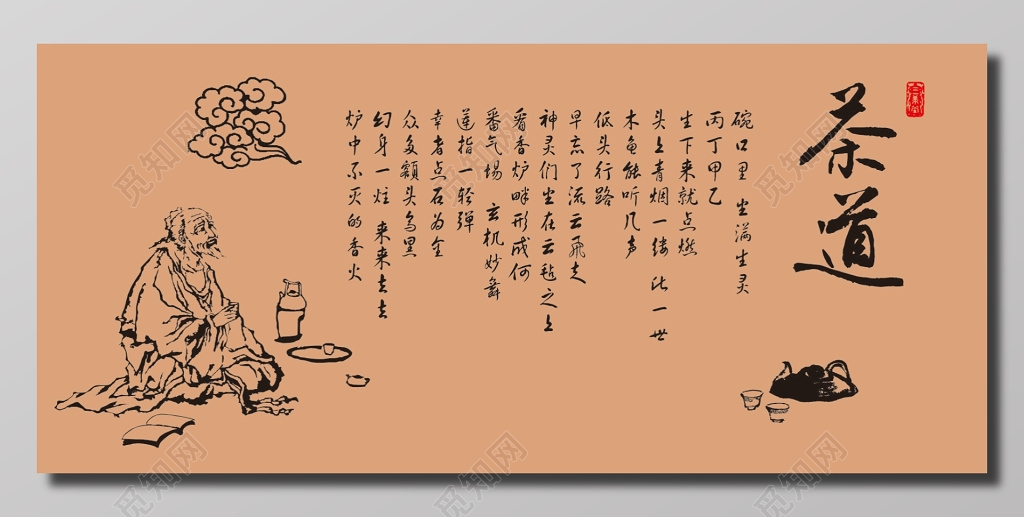 茶道
碗口里 坐满生灵
丙丁甲乙
生下来就点燃
头上青烟一缕 此一世
木鱼能听几声
低头行路
早忘了流云飛走
神灵们坐在云毡之上
看香炉畔形成何
番气场 玄机妙舞
莲指一轻弹
幸者点石为金
众多額头乌黑
幻身一炷 来来去去
炉中不灭的香火
觅知网